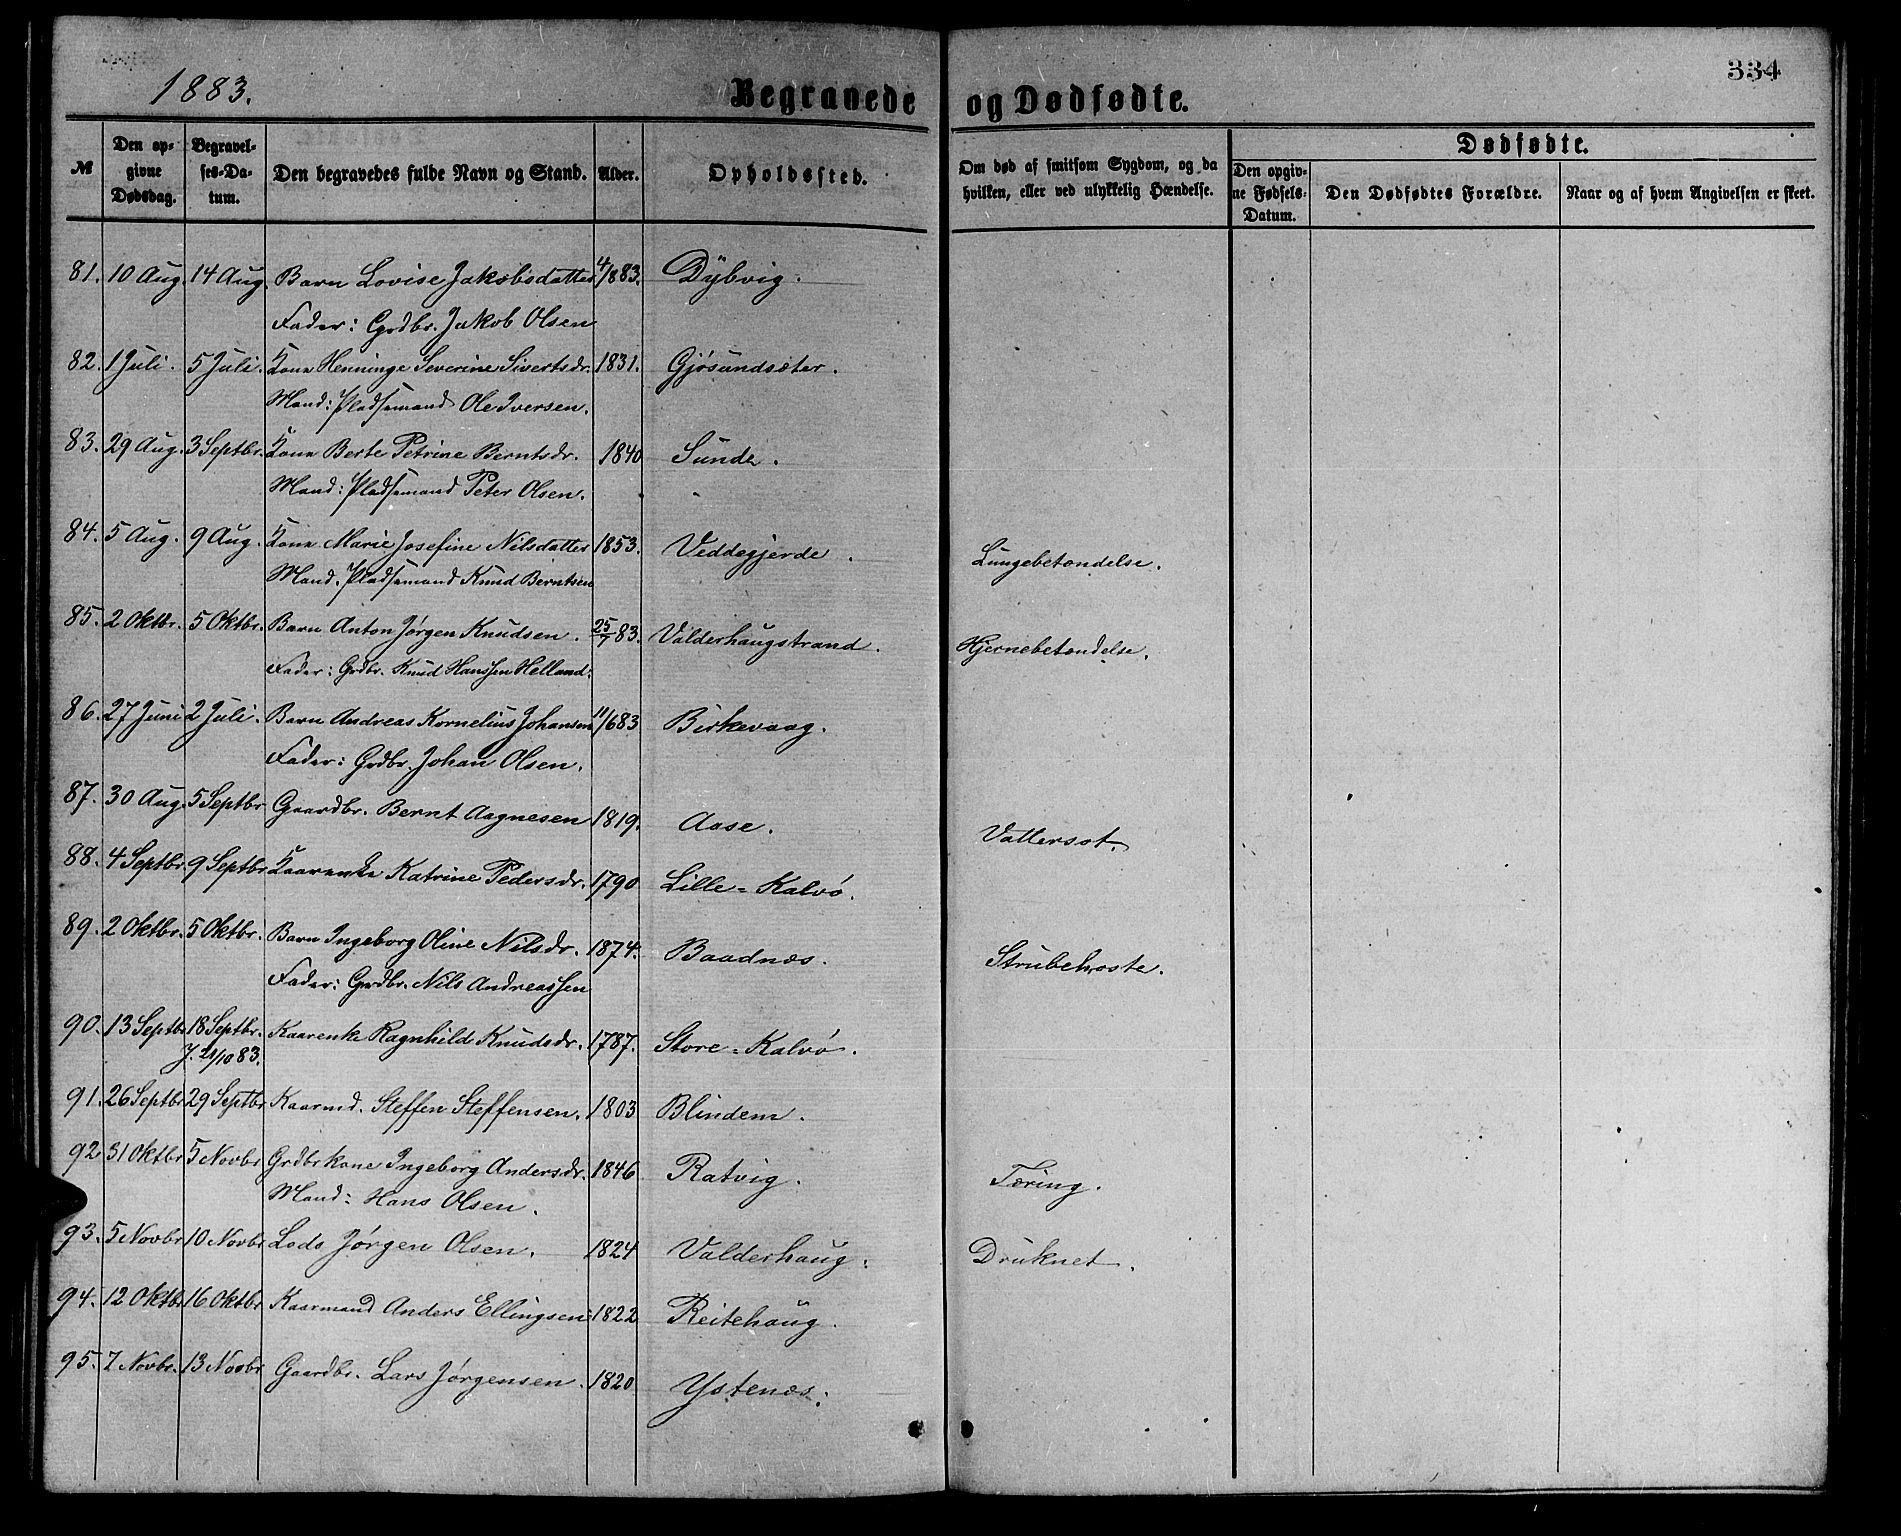 334
1883. Begravede og Dødfødte.
№ Den opgivne Dødsdag. Begravelses-Datum. Den begravedes fulde Navn og Stand. Alder. Opholdssted. Om død af smitsom Sygdom, og da hvilken, eller ved ulykkelig Hændelse. Dødfødte. Den opgivne Fødsels-Datum. Den Dødfødtes Forældre. Naar og af hvem Angivelsen er skeet.
81. 10 Aug. 14 Aug. Barn Lovise Jakobsdatter 4/883. Dybvig.
Fader: Grdbr. Jakob Olsen
82. 1 Juli. 5 Juli. Kone Henninge Severine Sivertsdr. 1831. Gjøsundsæter.
Mand: Pladsemand Ole Iversen.
83. 29 Aug. 3 Septbr. Kone Berte Petrine Berntsdr. 1840 Sunde.
Mand: Pladsemand Peter Olsen.
84. 5 Aug. 9 Aug. Kone Marie Josefine Nilsdatter 1853. Veddegjerde. Lungebetændelse.
Mand. Pladsemand Knud Berntsen
85. 2 Oktbr. 5 Oktbr. Barn Anton Jørgen Knudsen. 25/7 83. Valderhaugstrand. Hjernebetændelse.
Fader: Grdbr. Knud Hanssen Helland.
86. 27 Juni 2 Juli. Barn Andreas Kornelius Johansen 11/683 Birkevaag.
Fader: Grdbr. Johan Olsen.
87. 30 Aug. 5 Septbr Gaardbr. Bernt Aagnesen 1819. Aase. Vattersot.
88. 4 Septbr. 9 Septbr Kaarenke Katrine Pedersdr. 1790 Lille-Kalvø.
89. 2 Oktbr. 5 Oktbr. Barn Ingeborg Oline Nilsdr. 1874. Baadnæs. Strubehoste.
Fader: Grdbr. Nils Andreassen
90. 13 Septbr 18 Septbr. Kaarenke Ragnhild Knudsdr. 1787. Store-Kalvø.
J. 21/10 83.
91. 26 Septbr 29 Septbr Kaarmd. Steffen Steffensen. 1803 Blindem.
92 31 Oktbr 5 Novbr Grdbrkone Ingeborg Andersdr. 1846 Ratvig. Tæring.
Mand: Hans Olsen.
93. 5 Novbr 10 Novbr Lods Jørgen Olsen. 1824 Valderhaug. Druknet.
94. 12 Oktbr 16 Oktbr Kaarmand Anders Ellingsen 1822 Reitehaug.
95. 7 Novbr. 13 Novbr Gaardbr. Lars Jørgensen. 1820 Ystenæs.